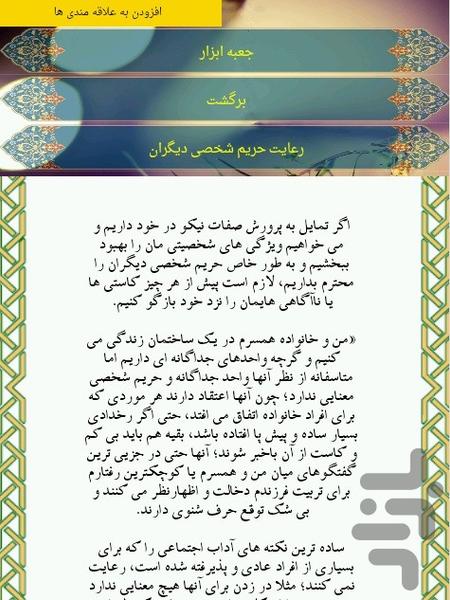 افزودن به علاقه مندی ها
جعبه ابزار
برگشت
رعایت حریم شخصی دیگران
اگر تمایل به پرورش صفات نیکو در خود داریم و
می خواهیم ویژگی های شخصیتی مان را بهبود
ببخشیم و به طور خاص حریم شخصی دیگران را
محترم بداریم، لازم است پیش از هر چیز کاستی ها
یا ناآگاهی هایمان را نزد خود بازگو کنیم.
«من و خانواده همسرم در یک ساختمان زندگی می
کنیم و گرچه واحدهای جداگانه ای داریم اما
متاسفانه از نظر آنها واحد جداگانه و حریم شخصی
معنایی ندارد؛ چون آنها اعتقاد دارند هر موردی که
برای افراد خانواده اتفاق می افتد، حتی اگر رخدادی
بسیار ساده و پیش پا افتاده باشد، بقیه هم باید بی کم
و کاست از آن باخبر شوند؛ آنها حتی در جزیی ترین
گفتگوهای میان من و همسرم یا کوچکترین رفتارم
برای تربیت فرزندم دخالت و اظهارنظر می کنند و
بی شک توقع حرف شنوی دارند.
ساده ترین نکته های آداب اجتماعی را که برای
بسیاری از افراد عادی و پذیرفته شده است، رعایت
نمی کنند؛ مثلا در زدن برای آنها هیچ معنایی ندارد
بازار